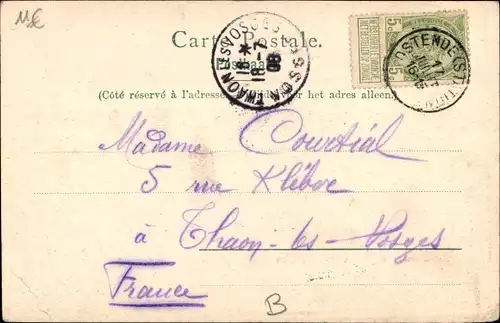 M€
Carte Postale.
Postkaart
(Côté réservé à l'adresse het adres alleen)
THAON VOSGES
18 -7
08
OSTENDE (ST.)
17
5 c 5
Madame Courtial
5 rue Kléber
à Thaon-les-Vosges
France
B